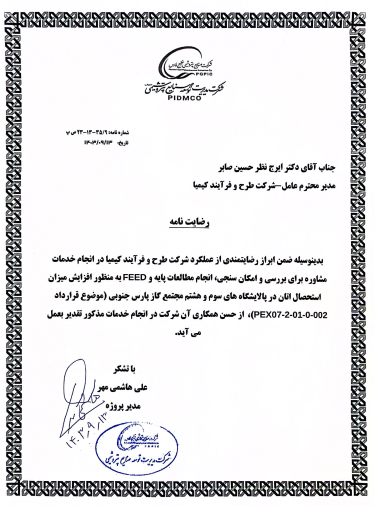 شرکت صنایع پتروشیمی خلیج فارس
PGPIC
شرکت مدیریت توسعه صنایع پتروشیمی
PIDMCO
شماره نامه: ۲۳-۱۳-۳۵/۹ ص پ
تاریخ: ۱۴۰۳/۰۹/۱۳
جناب آقای دکتر ایرج نظر حسین صابر
مدیر محترم عامل-شرکت طرح و فرآیند کیمیا
رضایت نامه
بدینوسیله ضمن ابراز رضایتمندی از عملکرد شرکت طرح و فرآیند کیمیا در انجام خدمات
مشاوره برای بررسی و امکان سنجی، انجام مطالعات پایه و FEED به منظور افزایش میزان
استحصال اتان در پالایشگاه های سوم و هشتم مجتمع گاز پارس جنوبی (موضوع قرارداد
PEX07-2-01-0-002)، از حسن همکاری آن شرکت در انجام خدمات مذکور تقدیر بعمل
می آید.
با تشکر
علی هاشمی مهر
مدیر پروژه
۱۴۰۳,۹,۱۳
PGPIC
شرکت مدیریت توسعه صنایع پتروشیمی